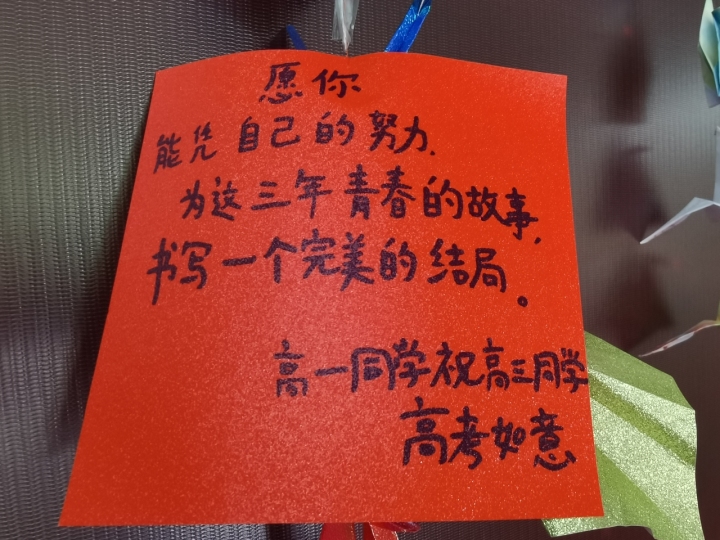 愿你
能凭自己的努力，
为这三年青春的故事，
书写一个完美的结局。
高一同学祝高三同学
高考如意